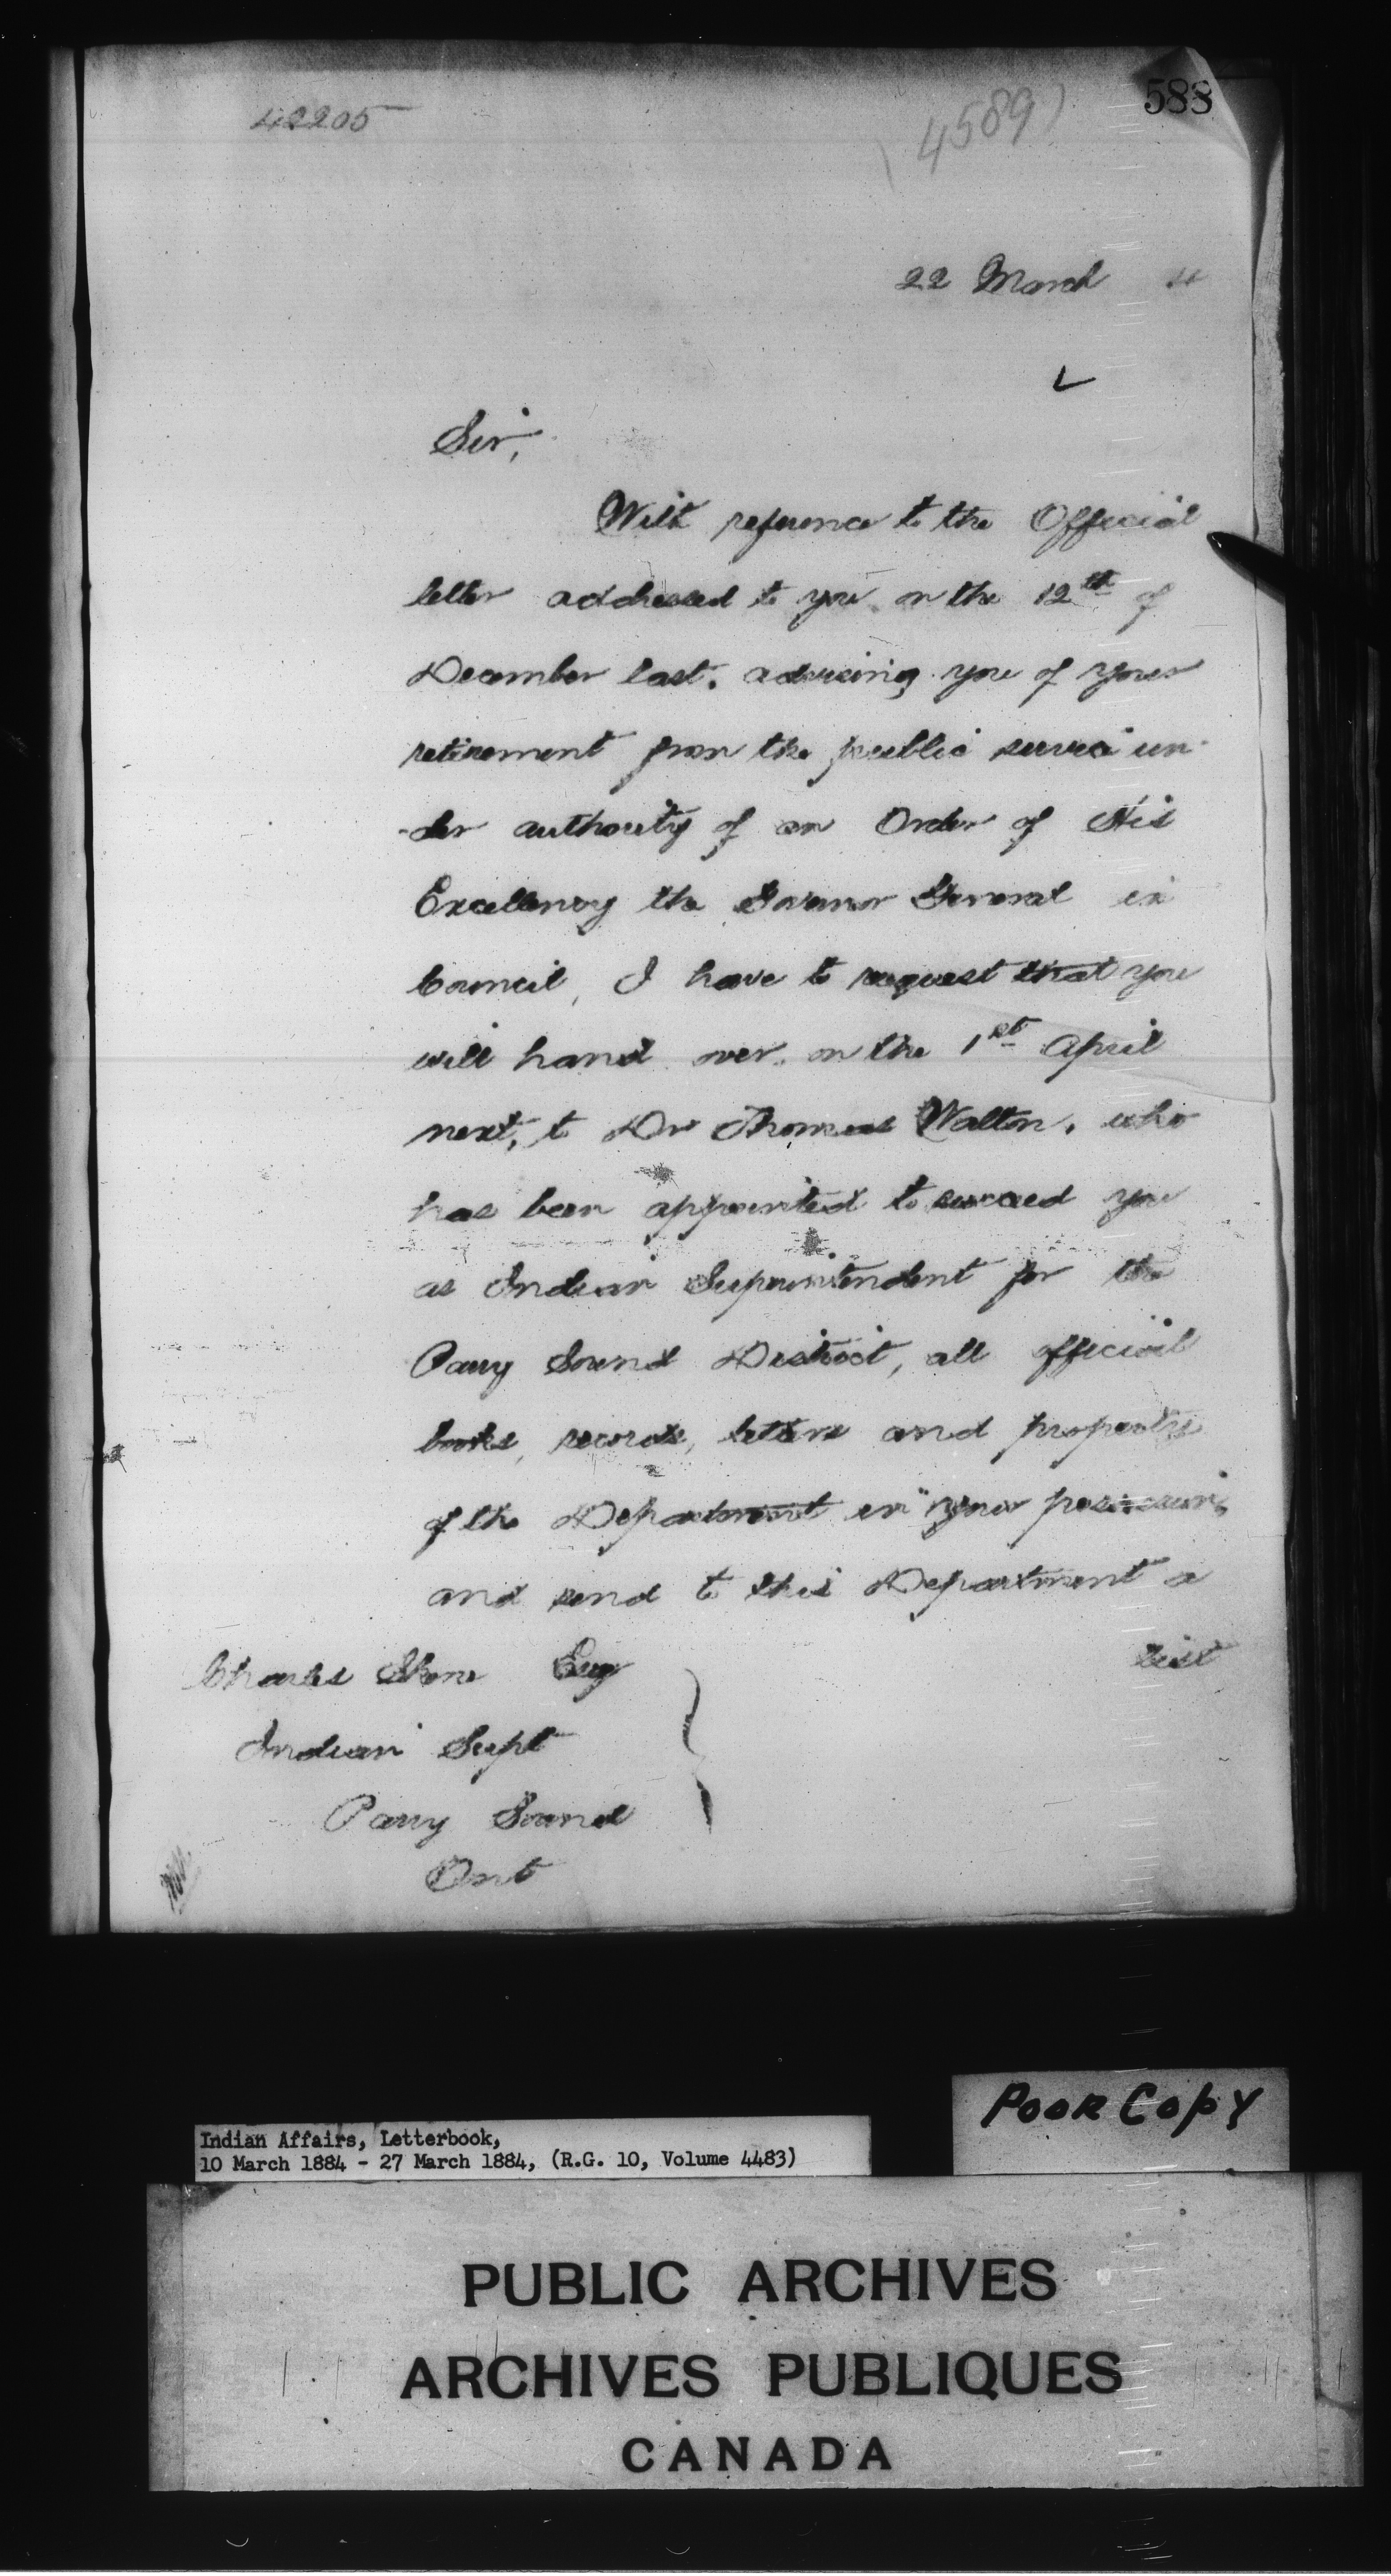 42205
(4589)
588
22 March 4
Sir,
With reference to the Official
letter addressed to you on the 12th of
December last, advising you of your
retirement from the public service un-
-der authority of an Order of His
Excellency the Governor General in
Council, I have to request that you
will hand over, on the 1st April
next, to Dr Thomas Walton, who
has been appointed to succeed you
as Indian Superintendent for the
Parry Sound District, all official
books, records, letters and property
of the Department in your possession,
and send to this Department a
list
Charles Skene Esq
Indian Supt
Parry Sound
Ont
POOR COPY
Indian Affairs, Letterbook,
10 March 1884 - 27 March 1884, (R.G. 10, Volume 4483)
PUBLIC ARCHIVES
ARCHIVES PUBLIQUES
CANADA